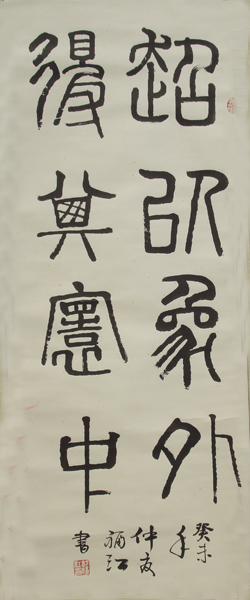 超以象外
得其寰中
癸未
年
仲夏
江
書